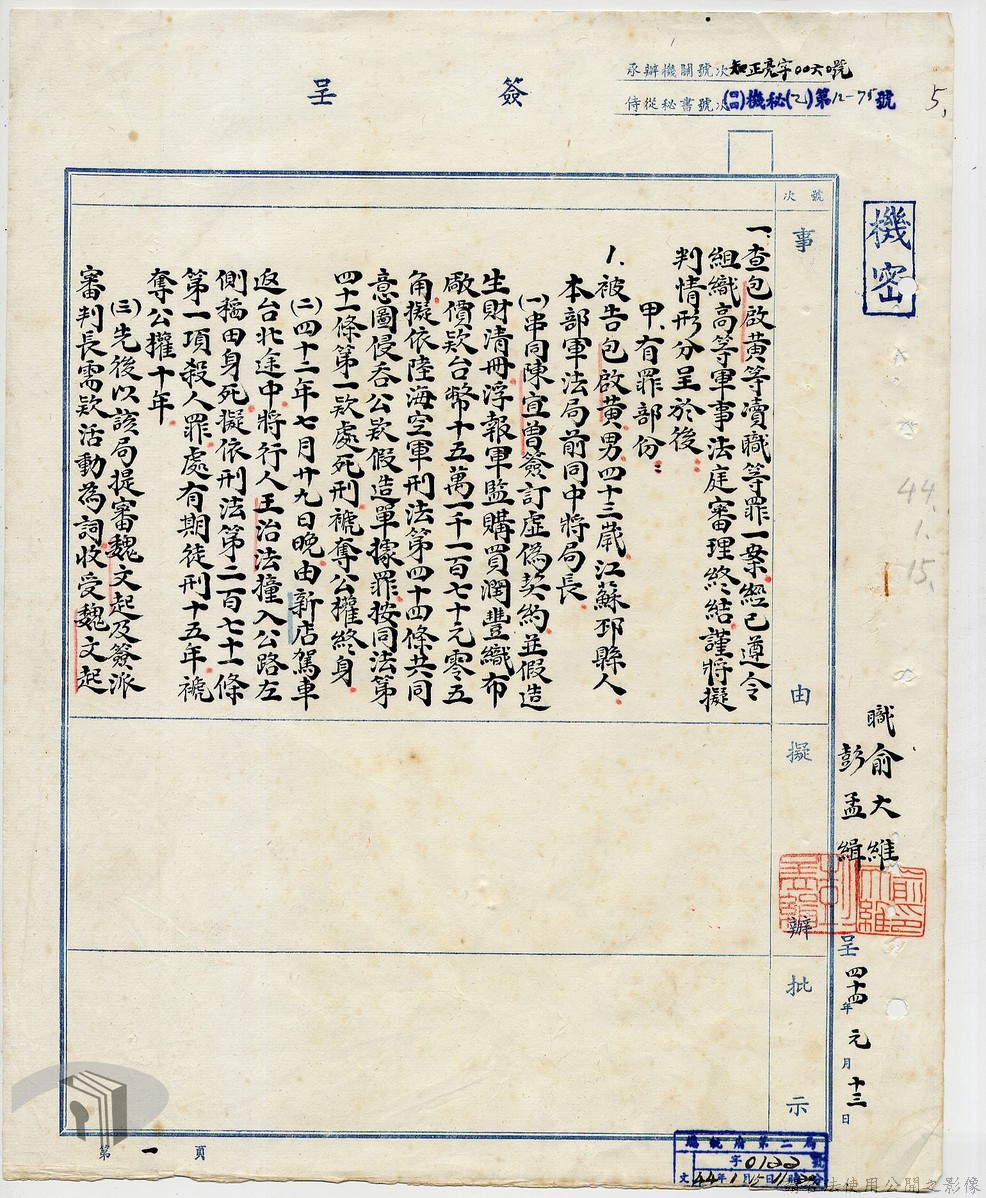 簽呈
承辦機關號次知正亮字0060號
侍從秘書號次機秘(乙)第12-75號
5,
機密
44.
1.
15.
職俞大維
彭孟緝
呈四十四年元月十三日
號次
事由
擬辦
批示
一、查包啟黃等瀆職等罪一案經已遵令
組織高等軍事法庭審理終結謹將擬
判情形分呈於後：
甲、有罪部份：
1.被告包啟黃男四十三歲江蘇邳縣人
本部軍法局前同中將局長
(一)串同陳宜曾簽訂虛偽契約並假造
生財清冊浮報軍監購買潤豐織布
廠價款台幣十五萬一千一百七十元零五
角擬依陸海空軍刑法第四十四條共同
意圖侵吞公款假造單據罪按同法第
四十一條第一款處死刑褫奪公權終身
(二)四十二年七月廿九日晚由新店駕車
返台北途中將行人王治法撞入公路左
側稻田身死擬依刑法第二百七十一條
第一項殺人罪處有期徒刑十五年褫
奪公權十年
(三)先後以該局提審魏文起及簽派
審判長需款活動為詞收受魏文起
第一頁
總統府第二局
字0122號
文44年1月15日11時分